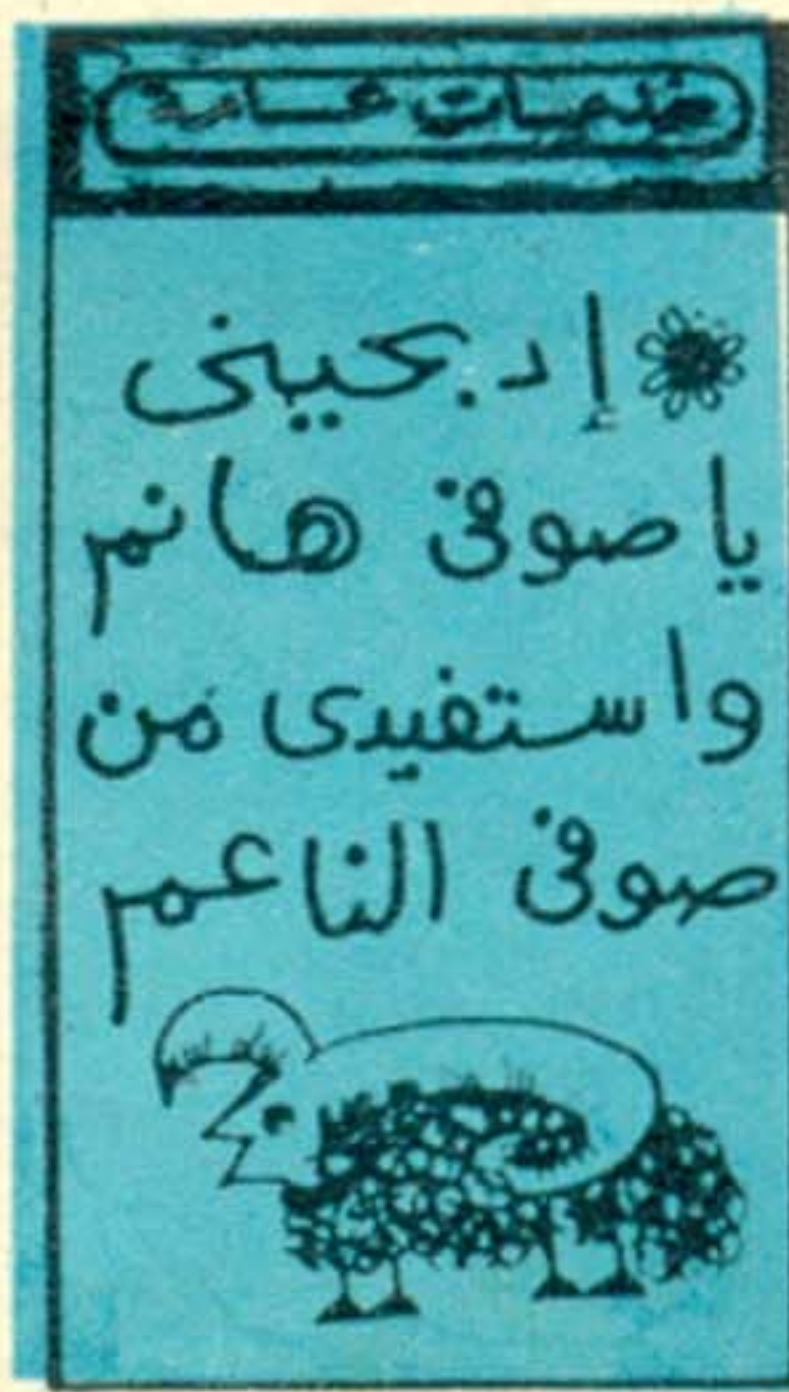 خدمات عامة
إدبحيني
يا صوفى هانم
واستفيدى من
صوفى الناعم